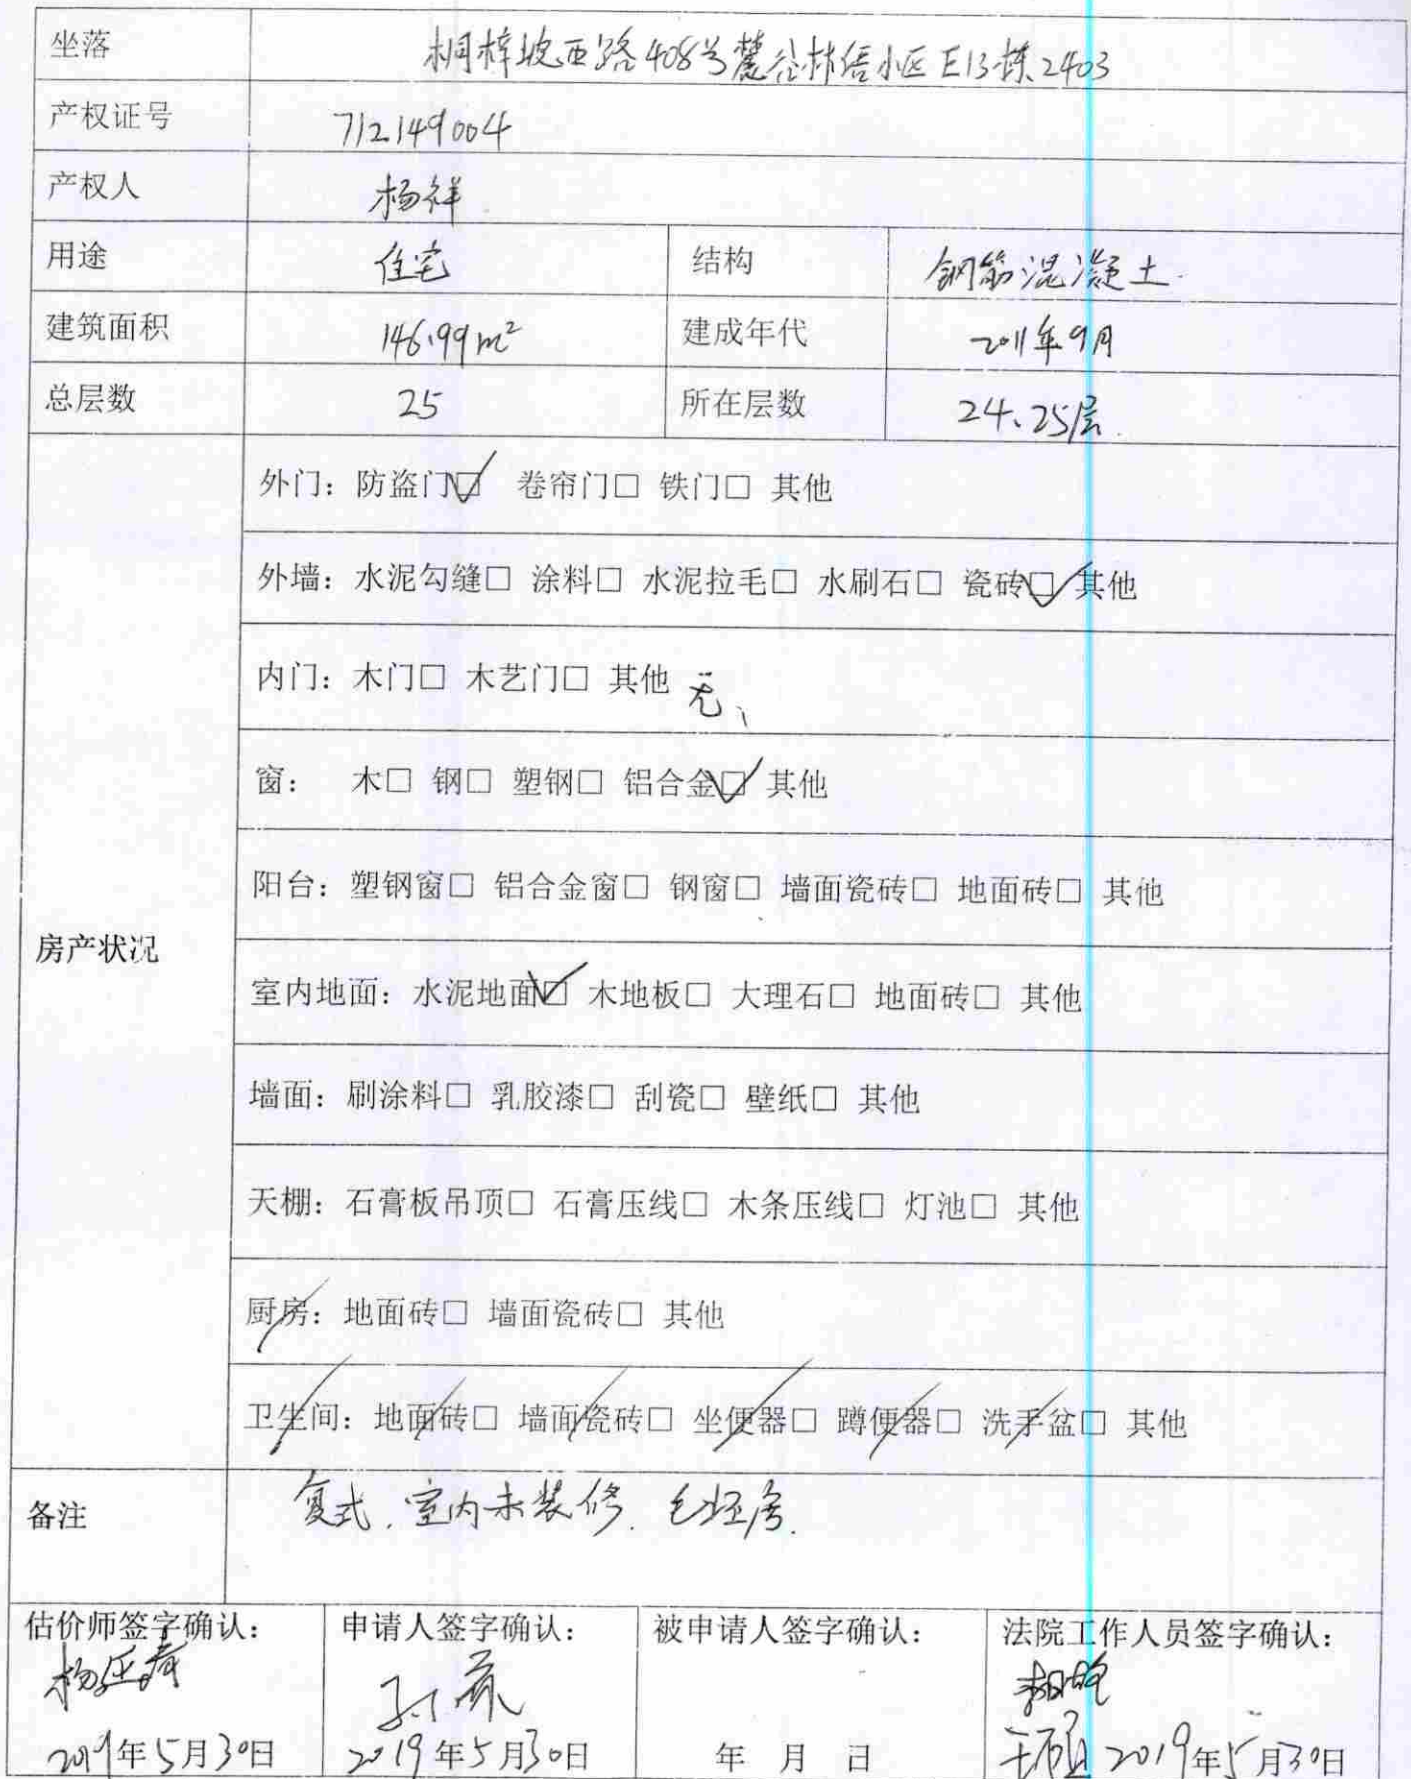 坐落 桐梓坡西路408号麓谷林语小区E13栋2403
产权证号 712149004
产权人 杨祥
用途 住宅 结构 钢筋混凝土
建筑面积 146.99m² 建成年代 2011年9月
总层数 25 所在层数 24、25层
外门：防盗门☑ 卷帘门□ 铁门□ 其他
外墙：水泥勾缝□ 涂料□ 水泥拉毛□ 水刷石□ 瓷砖☑ 其他
内门：木门□ 木艺门□ 其他 无、
窗： 木□ 钢□ 塑钢□ 铝合金☑ 其他
阳台：塑钢窗□ 铝合金窗□ 钢窗□ 墙面瓷砖□ 地面砖□ 其他
房产状况
室内地面：水泥地面☑ 木地板□ 大理石□ 地面砖□ 其他
墙面：刷涂料□ 乳胶漆□ 刮瓷□ 壁纸□ 其他
天棚：石膏板吊顶□ 石膏压线□ 木条压线□ 灯池□ 其他
厨房：地面砖□ 墙面瓷砖□ 其他
卫生间：地面砖□ 墙面瓷砖□ 坐便器□ 蹲便器□ 洗手盆□ 其他
备注 复式.室内未装修.毛坯房.
估价师签字确认： 申请人签字确认： 被申请人签字确认： 法院工作人员签字确认：
2019年5月30日 2019年5月30日 年 月 日 2019年5月30日